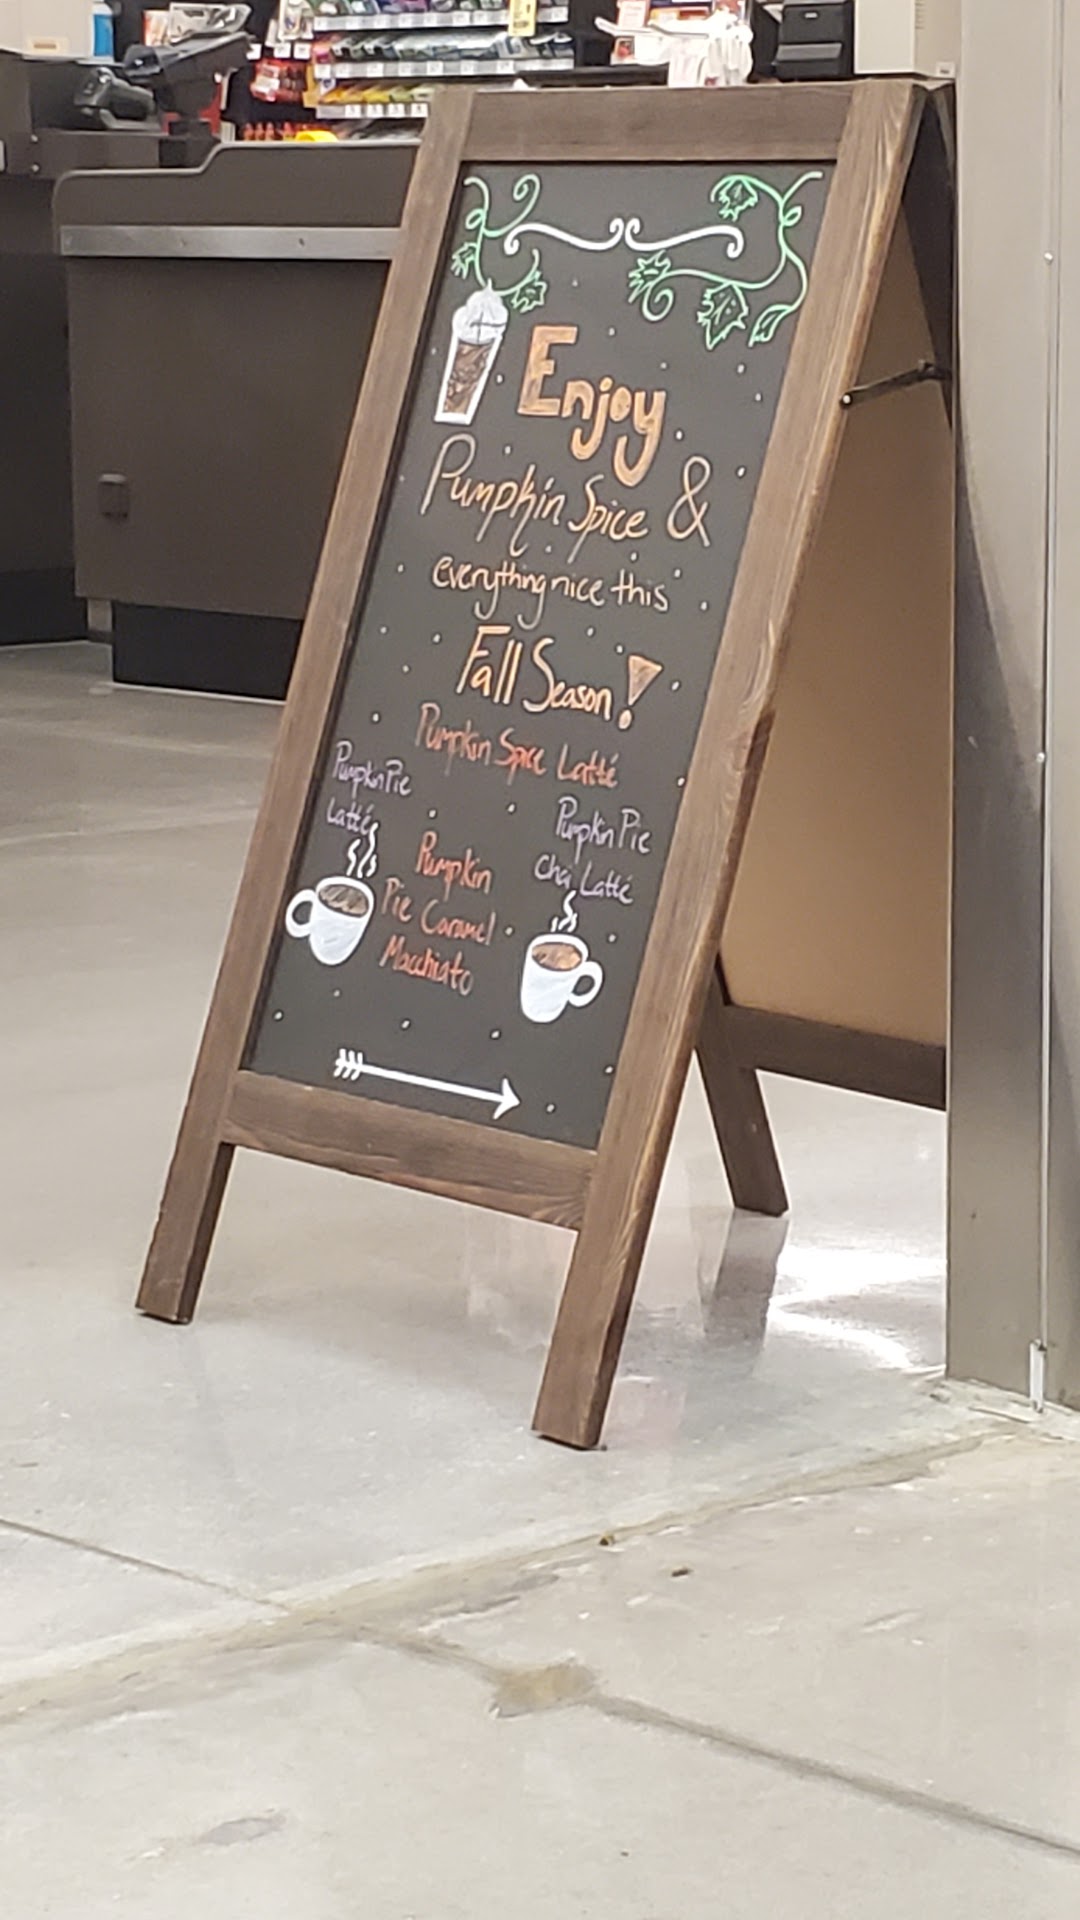 Enjoy
Pumpkin Spice &
everything nice this
Fall Season!
Pumpkin Spice Latté
Pumpkin Pie
Latté
Pumpkin
Pie Caramel
Macchiato
Pumpkin Pie
Chai Latté